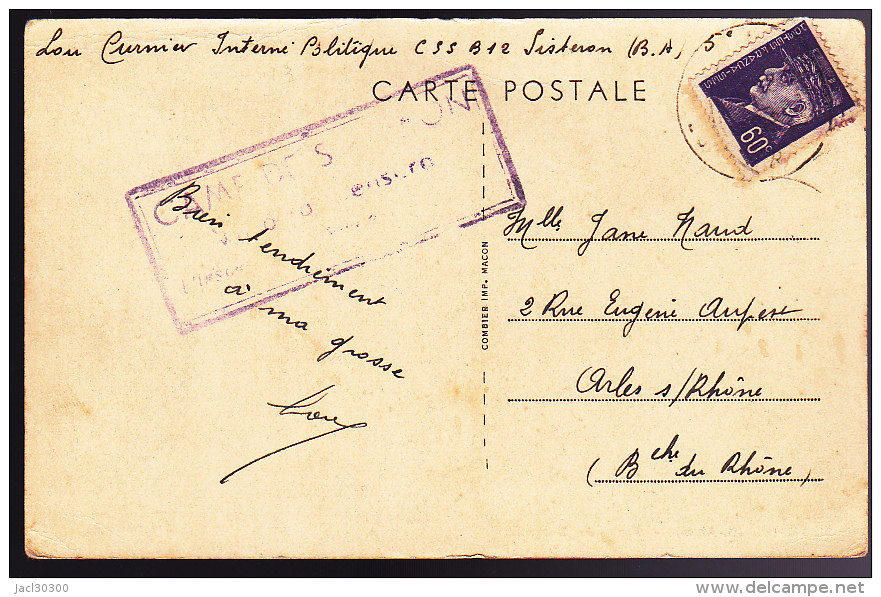 Lou Curnier Interné Politique CSS B12 Sisteron (B.A) 5e
CARTE POSTALE
60c
CAMP DE S ON
Bien tendrement
à ma grosse
Lou
COMBIER IMP. MACON
Mlle Jane Naud
2 Rue Eugène
Arles s/Rhône
(Bche du Rhône)
jacl30300
www.delcampe.net